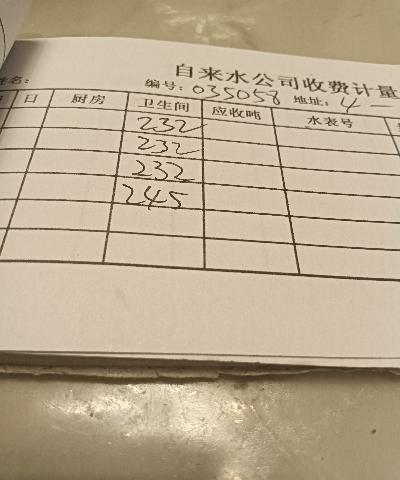 自来水公司收费计量
姓名： 编号：035058 地址：4一
日 厨房 卫生间 应收吨 水表号
232
232
232
245